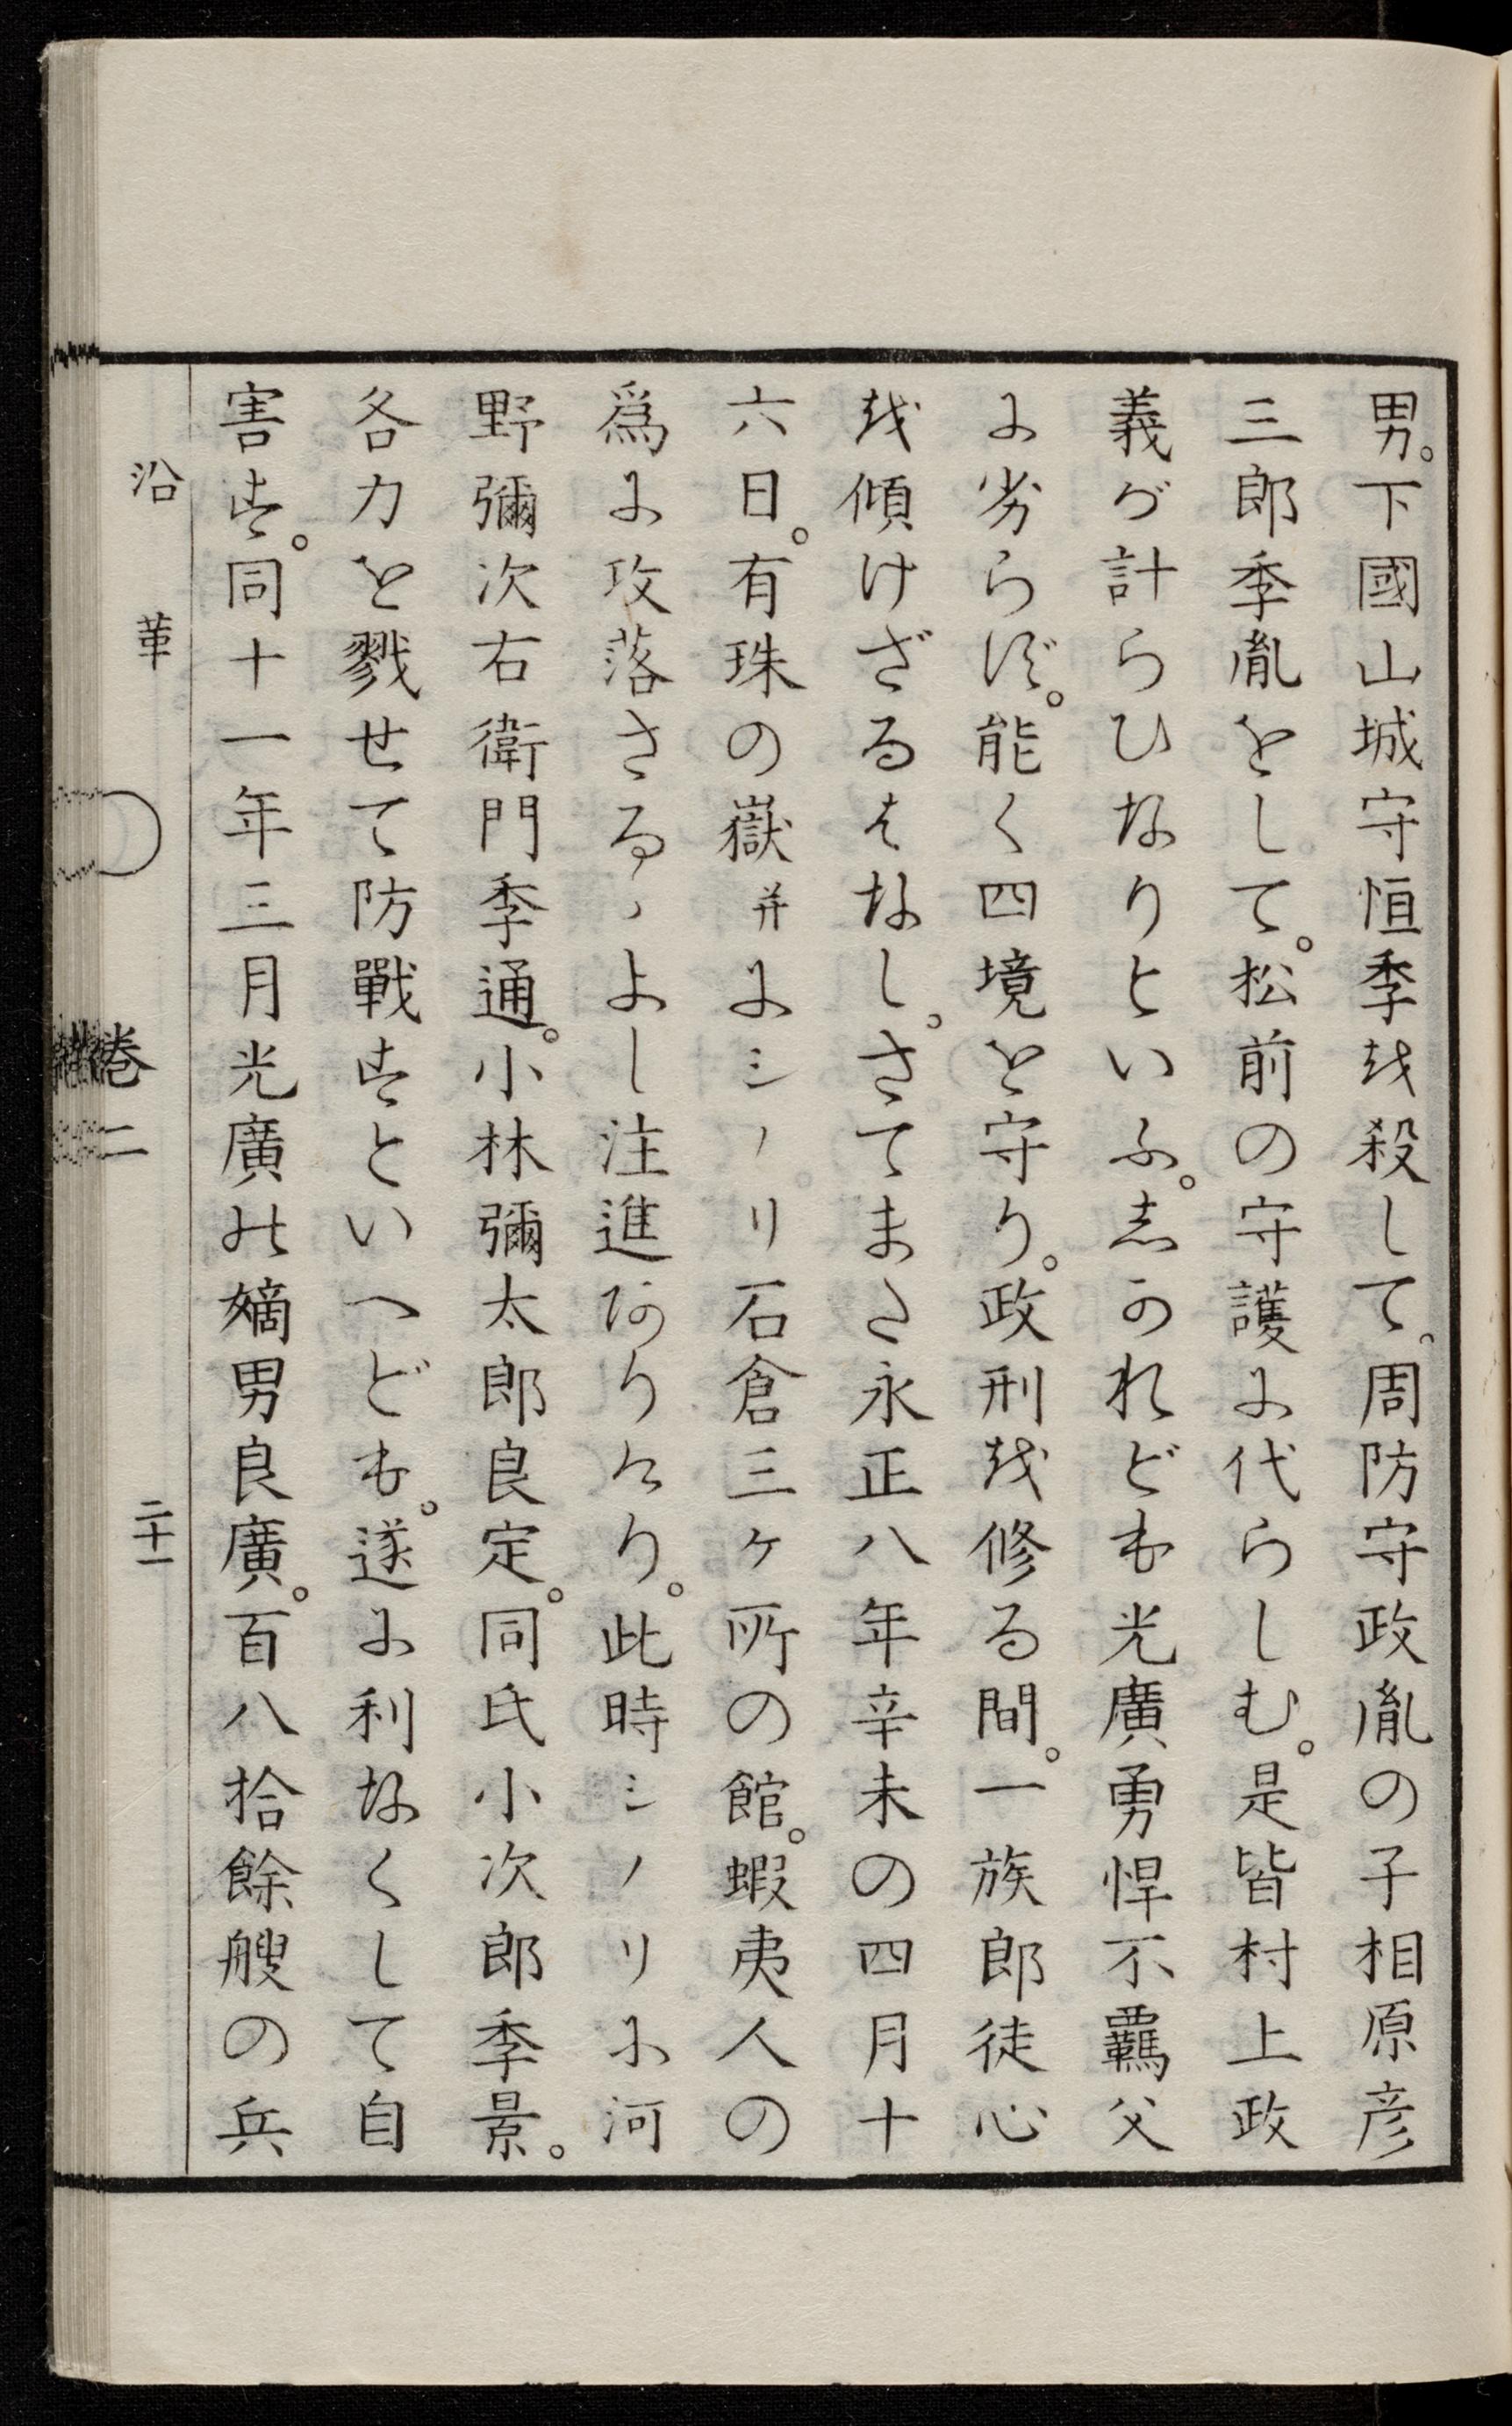 男。下國山城守恒季を殺して。周防守政胤の子相原彦
三郎季胤をして。松前の守護に代らしむ。是皆村上政
義が計らひなりといふ。志かれども光廣勇悍不羈父
に劣らず。能く四境を守り。政刑を修る間。一族郎徒心
を傾けざるはなし。さてまた永正八年辛未の四月十
六日。有珠の嶽并にシノリ石倉三ヶ所の館。蝦夷人の
爲に攻落さるゝよし注進ありけり。此時シノリに河
野彌次右衛門季通。小林彌太郎良定。同氏小次郎季景。
各力を戮せて防戰すといへども。遂に利なくして自
害す。同十一年三月光廣の嫡男良廣。百八拾餘艘の兵
沿革 卷二 二十一